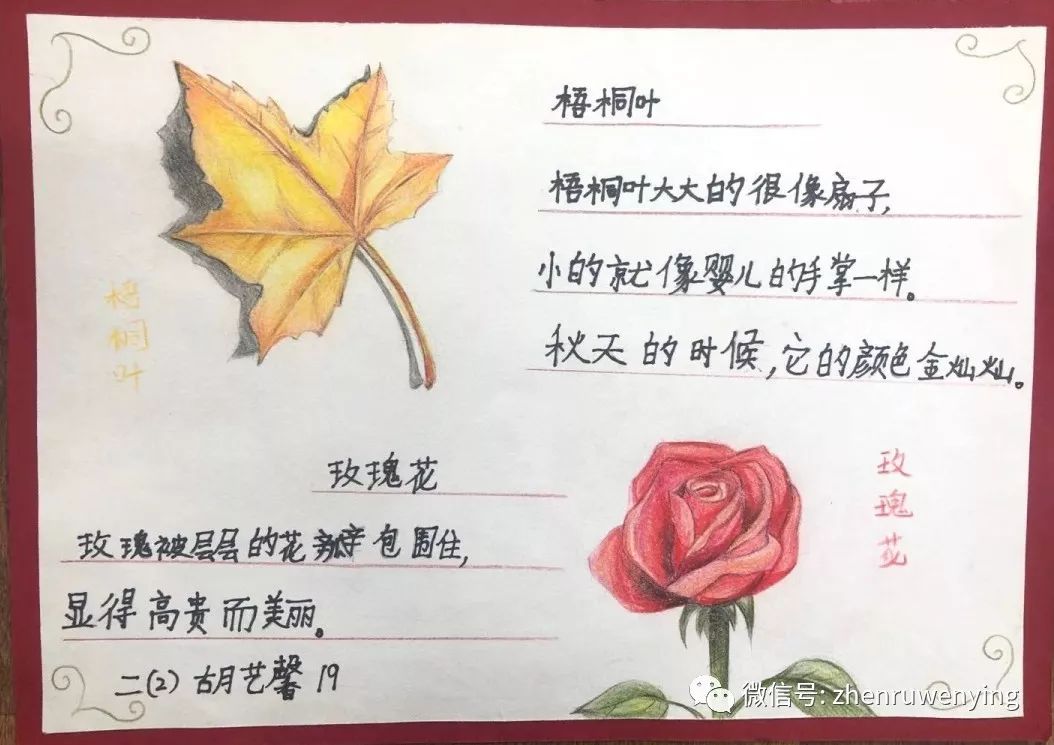 梧桐叶
梧桐叶大大的很像扇子,
小的就像婴儿的手掌一样。
秋天的时候,它的颜色金灿灿。
梧桐叶
玫瑰花
玫瑰被层层的花瓣包围住,
显得高贵而美丽。
二(2) 胡艺馨 19
玫瑰花
微信号: zhenruwenying